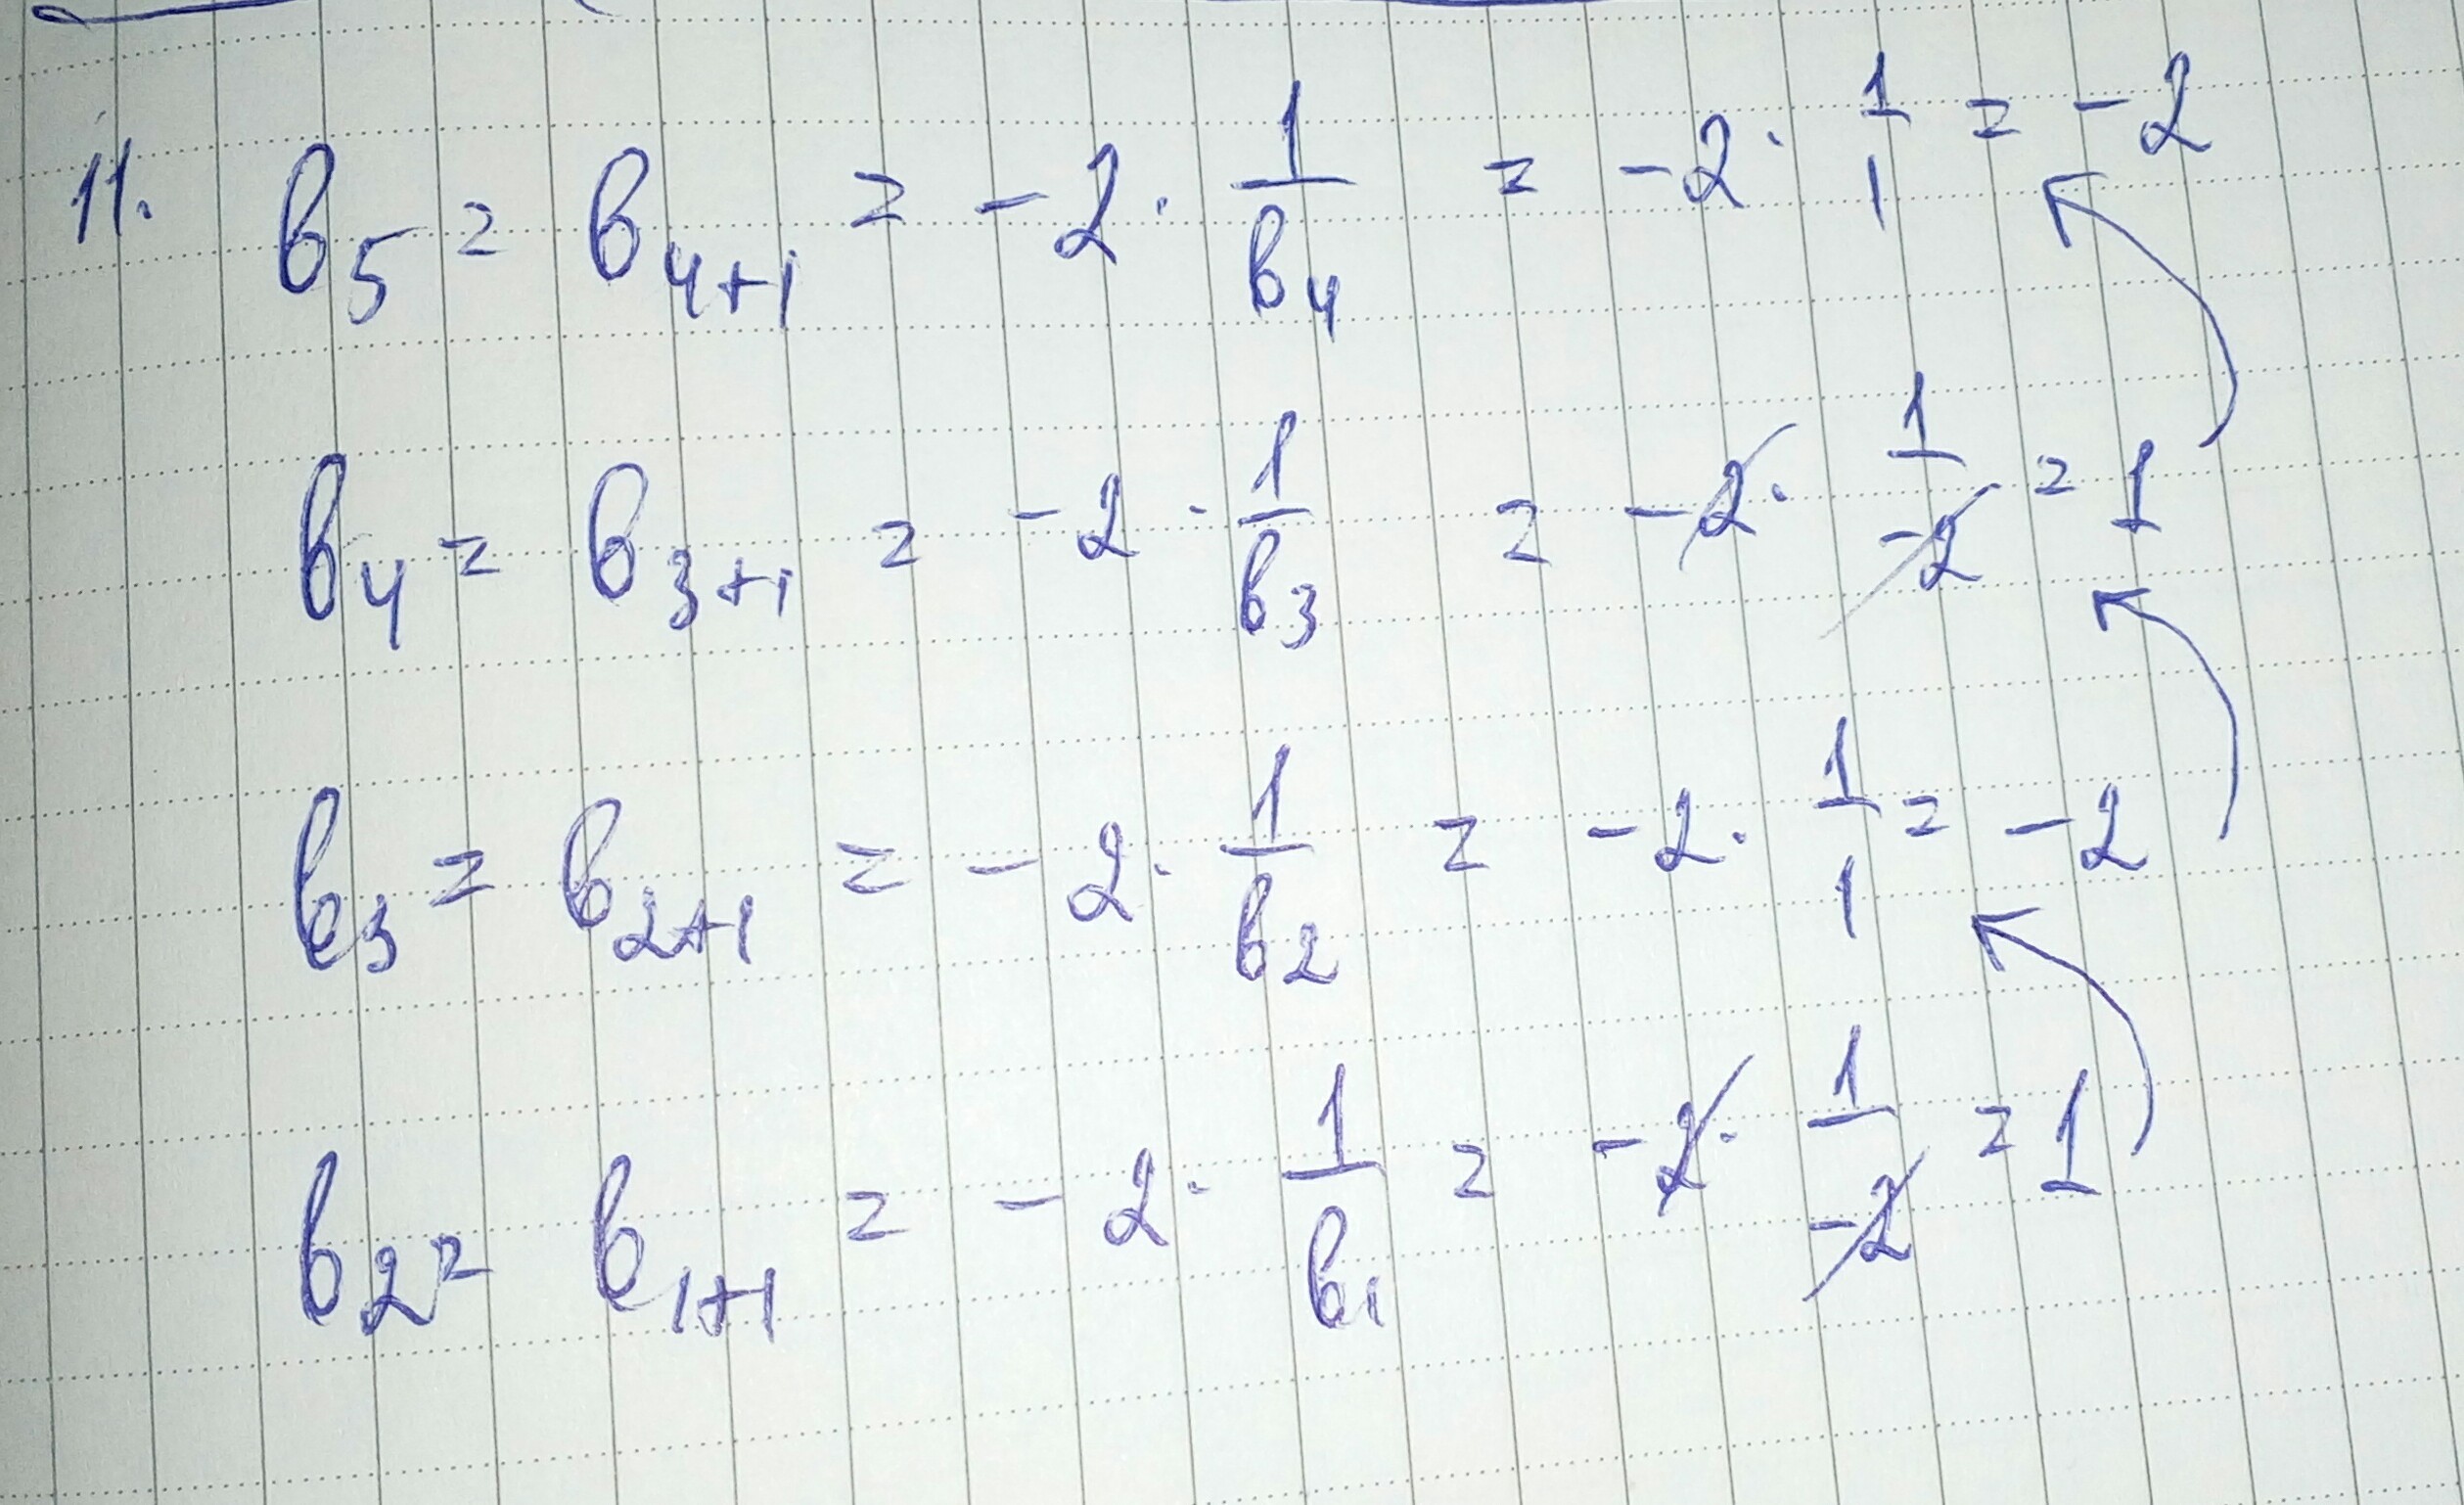 11. b₅ = b₄₊₁ = -2 · 1/b₄ = -2 · 1/1 = -2
b₄ = b₃₊₁ = -2 · 1/b₃ = -2 · 1/-2 = 1
b₃ = b₂₊₁ = -2 · 1/b₂ = -2 · 1/1 = -2
b₂ = b₁₊₁ = -2 · 1/b₁ = -2 · 1/-2 = 1